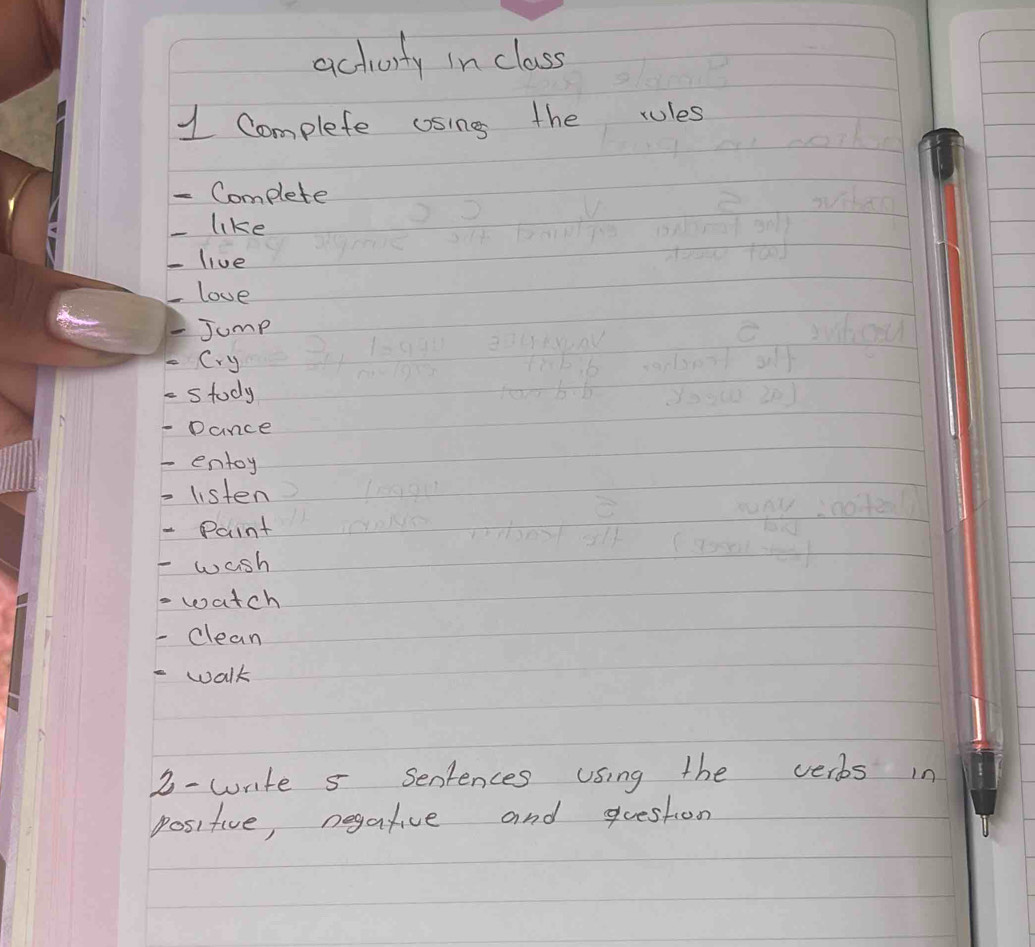 activity in class
1 Complete using the rules
- Complete
- like
- live
- love
- Jump
- Cry
- study
- Dance
- entoy
- listen
- Paint
- wash
- watch
- Clean
- walk
2- write 5 sentences using the verbs in
positive, negative and question